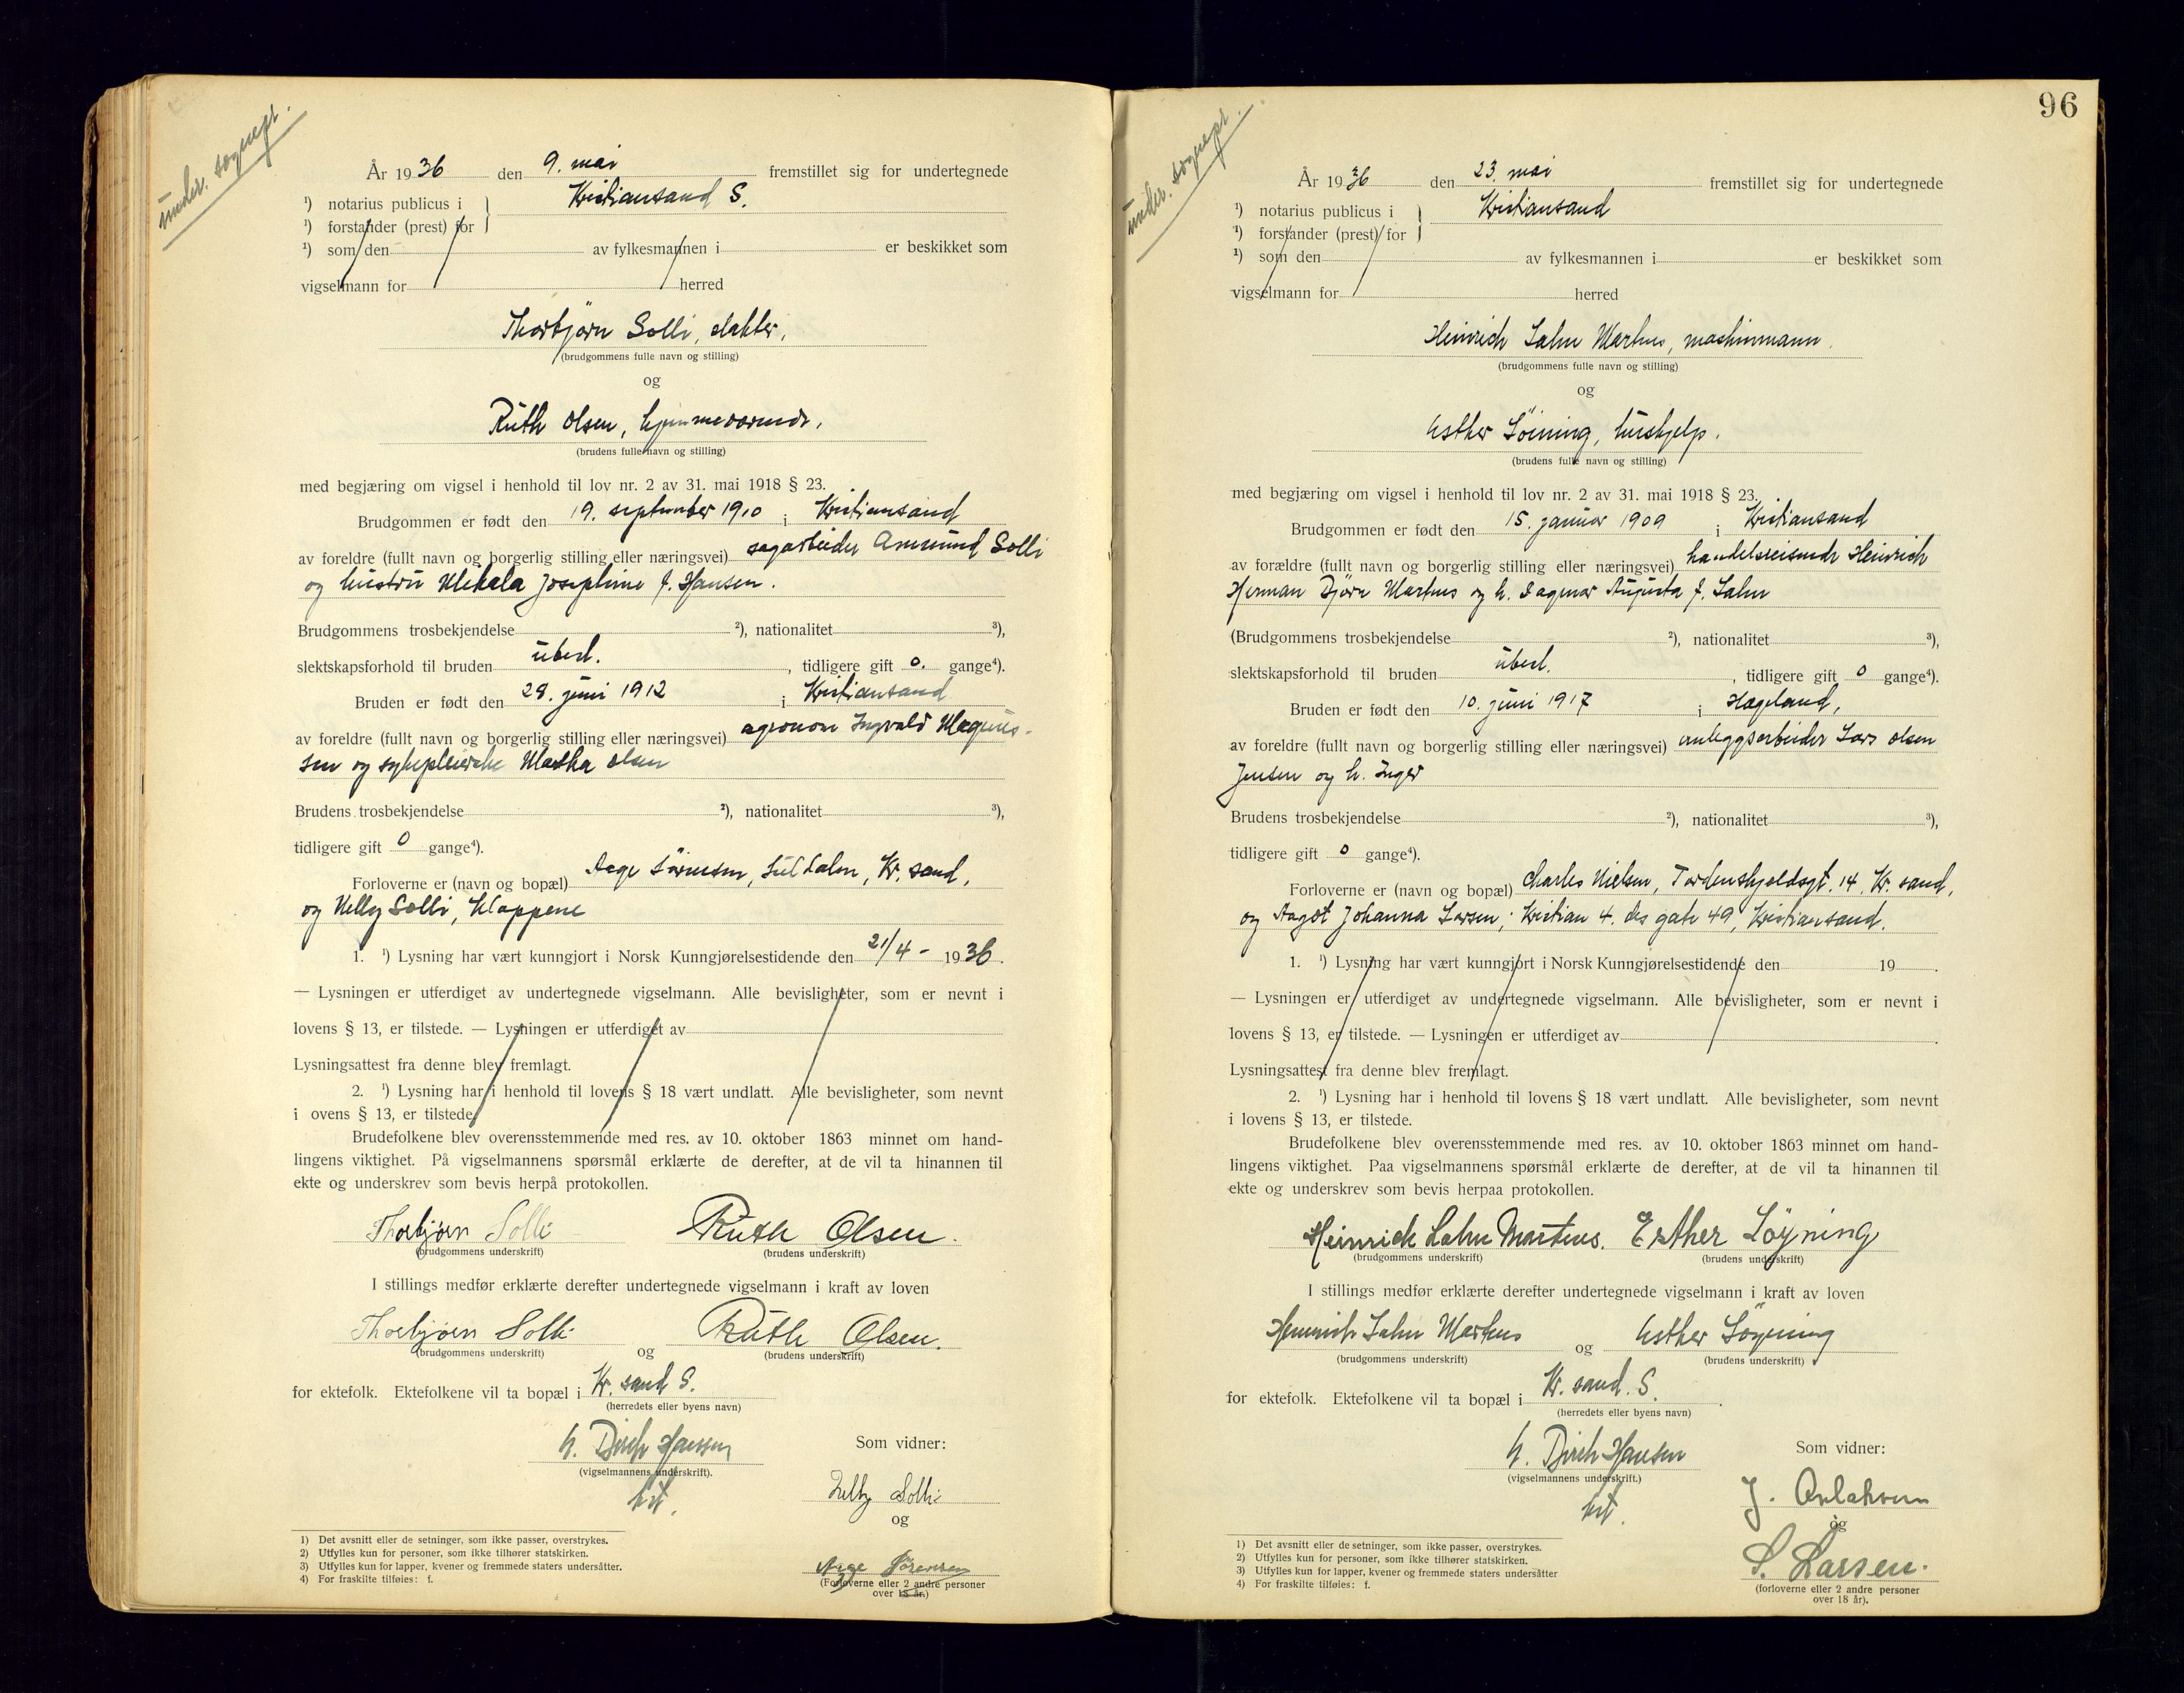 under. sognepr.
År 1936 den 9. mai fremstillet sig for undertegnede
¹) notarius publicus i } Kristiansand S.
¹) forstander (prest) for
¹) som den av fylkesmannen i er beskikket som
vigselmann for herred
Thorbjörn Solli, slakter,
(brudgommens fulle navn og stilling)
og
Ruth Olsen, hjemmeværende,
(brudens fulle navn og stilling)
med begjæring om vigsel i henhold til lov nr. 2 av 31. mai 1918 § 23.
Brudgommen er født den 19. september 1910 i Kristiansand
av foreldre (fullt navn og borgerlig stilling eller næringsvei) sagarbeider Solli
og hustru Josephine f. Hansen.
Brudgommens trosbekjendelse ²), nationalitet ³),
slektskapsforhold til bruden ubesl. , tidligere gift 0. gange⁴).
Bruden er født den 28. juni 1912 i Kristiansand
av foreldre (fullt navn og borgerlig stilling eller næringsvei) agronom Ingvald Magnus-
sen og sykepleierske Olsen
Brudens trosbekjendelse ²), nationalitet ³),
tidligere gift 0 gange⁴).
Forloverne er (navn og bopæl) Aage Sörensen, Kr. sand,
og Nelly Solli, Klappene
1. ¹) Lysning har vært kunngjort i Norsk Kunngjørelsestidende den 21/4 - 1936.
— Lysningen er utferdiget av undertegnede vigselmann. Alle bevisligheter, som er nevnt i
lovens § 13, er tilstede. — Lysningen er utferdiget av
Lysningsattest fra denne blev fremlagt.
2. ¹) Lysning har i henhold til lovens § 18 vært undlatt. Alle bevisligheter, som nevnt
i ovens § 13, er tilstede.
Brudefolkene blev overensstemmende med res. av 10. oktober 1863 minnet om hand-
lingens viktighet. På vigselmannens spørsmål erklærte de derefter, at de vil ta hinannen til
ekte og underskrev som bevis herpå protokollen.
Thorbjørn Solli Ruth Olsen.
(brudgommens underskrift) (brudens underskrift)
I stillings medfør erklærte derefter undertegnede vigselmann i kraft av loven
Thorbjørn Solli og Ruth Olsen.
(brudgommens underskrift) (brudens underskrift)
for ektefolk. Ektefolkene vil ta bopæl i Kr. sand S.
(herredets eller byens navn)
Birch Hansen Som vidner:
(vigselmannens underskrift).
Nelly Solli
og
Aage Sörensen
(Forloverne eller 2 andre personer
over 18 år.)
1) Det avsnitt eller de setninger, som ikke passer, overstrykes.
2) Utfylles kun for personer, som ikke tilhører statskirken.
3) Utfylles kun for lapper, kvener og fremmede staters undersåtter.
4) For fraskilte tilføies: f.
96
under. sognepr.
År 1936 den 23. mai fremstillet sig for undertegnede
¹) notarius publicus i } Kristiansand
¹) forstander (prest) for
¹) som den av fylkesmannen i er beskikket som
vigselmann for herred
Heinrich Lahn Martens, maskinmann.
(brudgommens fulle navn og stilling)
og
Esther Löining, hushjelp.
(brudens fulle navn og stilling)
med begjæring om vigsel i henhold til lov nr. 2 av 31. mai 1918 § 23.
Brudgommen er født den 15. januar 1909 i Kristiansand
av forældre (fullt navn og borgerlig stilling eller næringsvei) handelsreisende Heinrich
Herman Björn Martens og h. Dagmar Augusta f. Lahn
(Brudgommens trosbekjendelse ²), nationalitet ³),
slektskapsforhold til bruden ubesl. , tidligere gift 0 gange⁴).
Bruden er født den 10. juni 1917 i Hægeland,
av foreldre (fullt navn og borgerlig stilling eller næringsvei) anleggsarbeider Lars Olsen
Jensen og h. Inger
Brudens trosbekjendelse ²), nationalitet ³),
tidligere gift 0 gange⁴).
Forloverne er (navn og bopæl) Charles Nielsen, Tordenskjoldsgt. 14, Kr. sand,
og Aagot Johanna Larsen, Kristian 4. des gate 49, Kristiansand.
1. ¹) Lysning har vært kunngjort i Norsk Kunngjørelsestidende den 19 .
— Lysningen er utferdiget av undertegnede vigselmann. Alle bevisligheter, som er nevnt i
lovens § 13, er tilstede. — Lysningen er utferdiget av .
Lysningsattest fra denne blev fremlagt.
2. ¹) Lysning har i henhold til lovens § 18 vært undlatt. Alle bevisligheter, som nevnt
i lovens § 13, er tilstede.
Brudefolkene blev overensstemmende med res. av 10. oktober 1863 minnet om hand-
lingens viktighet. Paa vigselmannens spørsmål erklærte de derefter, at de vil ta hinannen til
ekte og underskrev som bevis herpaa protokollen.
Heinrich Lahn Martens. Esther Löyning
(brudgommens underskrift) (brudens underskrift)
I stillings medfør erklærte derefter undertegnede vigselmann i kraft av loven
Heinrich Lahn Martens og Esther Löyning
(brudgommens underskrift) (brudens underskrift)
for ektefolk. Ektefolkene vil ta bopæl i Kr. sand. S. .
(herredets eller byens navn)
Birch Hansen Som vidner:
(vigselmannens underskrift.)
J.
og
S. Larsen.
(forloverne eller 2 andre personer
over 18 år).
1) Det avsnitt eller de setninger, som ikke passer, overstrykes.
2) Utfylles kun for personer, som ikke tilhører statskirken.
3) Utfylles kun for lapper, kvener og fremmede staters undersåtter
4) For fraskilte tilføies: f.